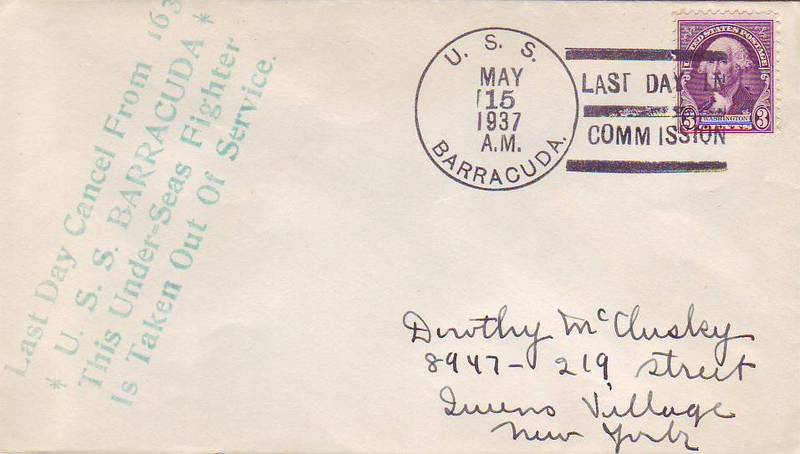 Last Day Cancel From 163
* U. S. S. BARRACUDA *
This Under=Seas Fighter
Is Taken Out Of Service.
U. S. S.
MAY
15
1937
A.M.
BARRACUDA.
LAST DAY IN
COMMISSION
UNITED STATES POSTAGE
3 WASHINGTON 3
CENTS
Dorothy McClusky
8947 - 219 Street
Queens Village
New York